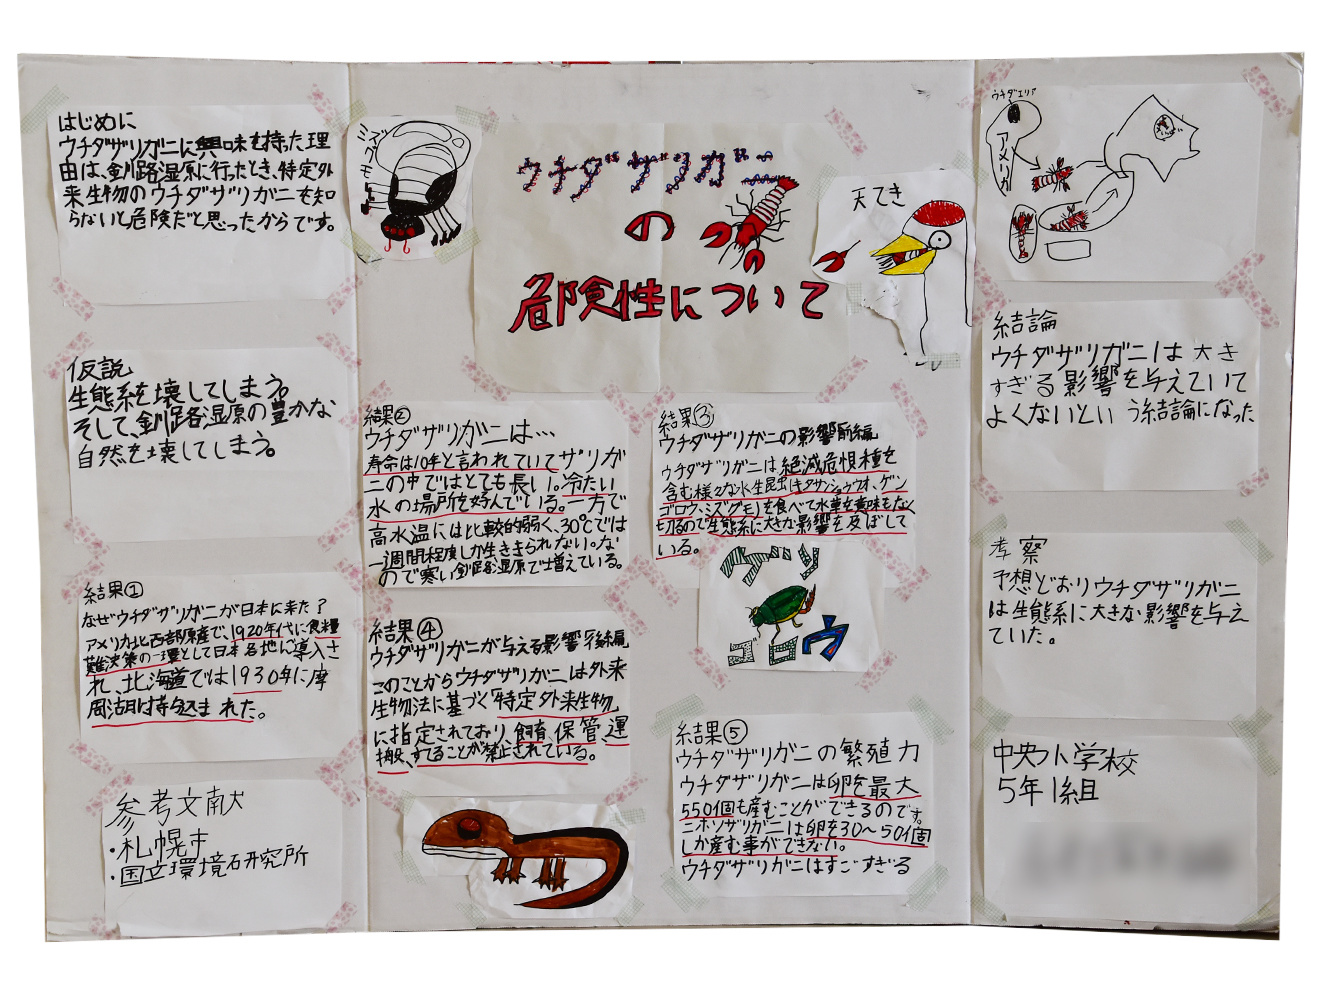 ウチダザリガニ
の
危険性について
はじめに
ウチダザリガニに興味を持った理
由は、釧路湿原に行ったとき、特定外
来生物のウチダザリガニを知
らないと危険だと思ったからです。
仮説
生態系を壊してしまう。
そして、釧路湿原の豊かな
自然を壊してしまう。
結果①
なぜウチダザリガニが日本に来た?
アメリカ北西部原産で、1920年代に食糧
難対策の一環として日本各地に導入さ
れ、北海道では1930年に摩
周湖に持ち込まれた。
参考文献
・札幌市
・国立環境研究所
ミズグモ
天てき
結果②
ウチダザリガニは…
寿命は10年と言われていてザリガ
ニの中ではとても長い。冷たい
水の場所を好んでいる。一方で
高水温には比較的弱く、30℃では
一週間程度しか生きられない。な
ので寒い釧路湿原で増えている。
結果③
ウチダザリガニの影響前編
ウチダザリガニは絶滅危惧種を
含む様々な水生昆虫(キタサンショウウオ、ゲン
ゴロウ、ミズグモ)を食べて水草を意味もなく
切るので生態系に大きな影響を及ぼして
いる。
ゲンゴロウ
結果④
ウチダザリガニが与える影響後編
このことからウチダザリガニは外来
生物法に基づく「特定外来生物」
に指定されており、飼育、保管、運
搬、することが禁止されている。
結果⑤
ウチダザリガニの繁殖力
ウチダザリガニは卵を最大
550個も産むことができるのです。
ニホンザリガニは卵を30〜50個
しか産む事ができない。
ウチダザリガニはすごすぎる
ウチダエリア
アメリカ
結論
ウチダザリガニは大き
すぎる影響を与えていて
よくないという結論になった
考察
予想どおりウチダザリガニ
は生態系に大きな影響を与え
ていた。
中央小学校
5年1組